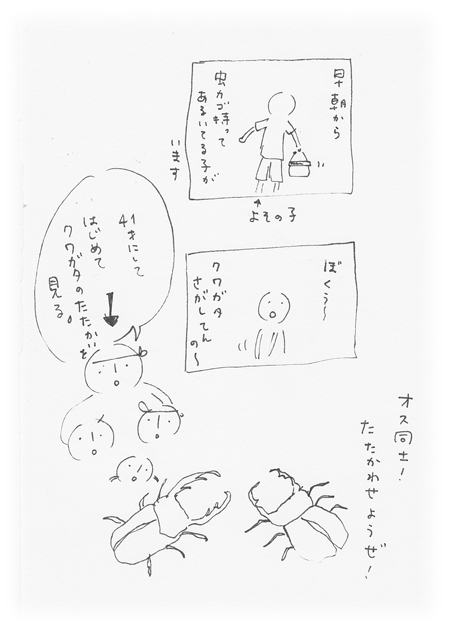 早朝から
虫カゴ持って
あるいてる子が
います
よその子
ぼくぅ〜
クワガタ
さがしてん
の〜
41才にして
はじめて
クワガタのたたかいを
見る。
オス同士！
たたかわせようぜ！